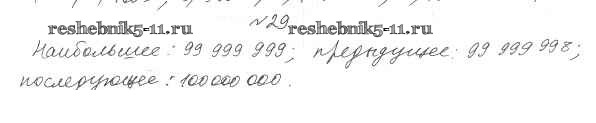 №29
reshebnik5-11.ru reshebnik5-11.ru
Наибольшее: 99 999 999; предыдущее: 99 999 998;
последующее: 100 000 000.